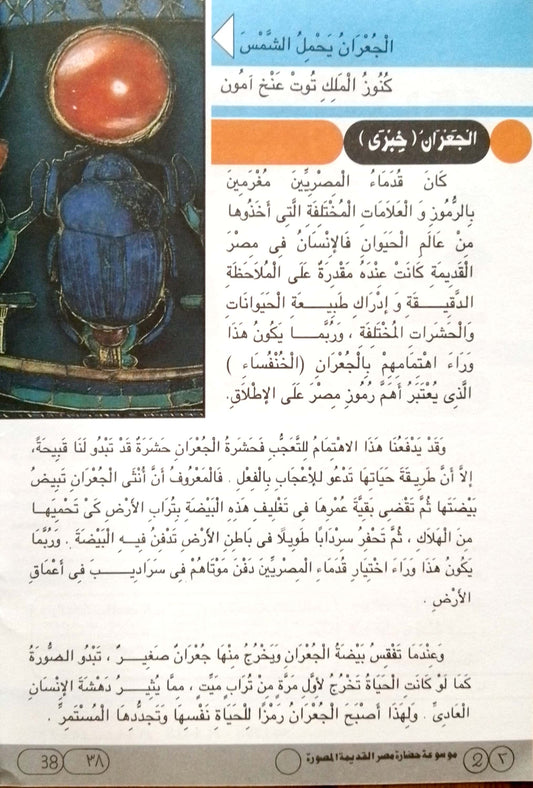 الْجُعْرَانُ يَحْمِلُ الشَّمْسَ
كُنُوزُ الْمَلِكِ تُوتْ عَنْخ آمُون
الْجَعْرَانَ ( خِبْرَى )
كَانَ قُدَمَاءُ الْمِصْرِيِّينَ مُغْرَمِينَ
بِالرُّمُوزِ وَ الْعَلَامَاتِ الْمُخْتَلِفَةِ الَّتِى أَخَذُوهَا
مِنْ عَالَمِ الْحَيَوَانِ فَالإِنْسَانُ فِى مِصْرَ
الْقَدِيمَةِ كَانَتْ عِنْدَهُ مَقْدِرَةٌ عَلَى الْمُلَاحَظَةِ
الدَّقِيقَةِ وَ إِدْرَاكِ طَبِيعَةِ الْحَيَوَانَاتِ
وَالْحَشَرَاتِ الْمُخْتَلِفَةِ ، وَرُبَّمَا يَكُونُ هَذَا
وَرَاءَ اهْتِمَامِهِمْ بِالْجُعْرَانِ (الْخُنْفُسَاءِ )
الَّذِى يُعْتَبَرُ أَهَمَّ رُمُوزِ مِصْرَ عَلَى الإِطْلَاقِ.
وَقَدْ يَدْفَعُنَا هَذَا الاهْتِمَامُ لِلتَّعَجُّبِ فَحَشَرَةُ الْجُعْرَانِ حَشَرَةٌ قَدْ تَبْدُو لَنَا قَبِيحَةً،
إِلاَّ أَنَّ طَرِيقَةَ حَيَاتِهَا تَدْعُو لِلإِعْجَابِ بِالْفِعْلِ . فَالْمَعْرُوفُ أَنَّ أُنْثَى الْجُعْرَانِ تَبِيضُ
بَيْضَتَهَا ثُمَّ تَقْضِى بَقِيَّةَ عُمْرِهَا فِى تَغْلِيفِ هَذِهِ الْبَيْضَةِ بِتُرَابِ الأَرْضِ كَىْ تَحْمِيهَا
مِنَ الْهَلَاكِ ، ثُمَّ تَحْفُرُ سِرْدَابًا طَوِيلًا فِى بَاطِنِ الأَرْضِ تَدْفِنُ فِيهِ الْبَيْضَةَ . وَرُبَّمَا
يَكُونُ هَذَا وَرَاءَ اخْتِيَارِ قُدَمَاءِ الْمِصْرِيِّينَ دَفْنَ مَوْتَاهُمْ فِى سَرَادِيبَ فِى أَعْمَاقِ
الأَرْضِ .
وَعِنْدَمَا تَفْقِسُ بَيْضَةُ الْجُعْرَانِ وَيَخْرُجُ مِنْهَا جُعْرَانٌ صَغِيرٌ ، تَبْدُو الصُّورَةُ
كَمَا لَوْ كَانَتِ الْحَيَاةُ تَخْرُجُ لأَوَّلِ مَرَّةٍ مِنْ تُرَابٍ مَيِّتٍ ، مِمَّا يُثِيرُ دَهْشَةَ الإِنْسَانِ
الْعَادِىِّ . وَلِهَذَا أَصْبَحَ الْجُعْرَانُ رَمْزًا لِلْحَيَاةِ نَفْسِهَا وَتَجَدُّدِهَا الْمُسْتَمِرِّ .
٢ 2 موسوعة حضارة مصر القديمة المصورة ٣٨ 38